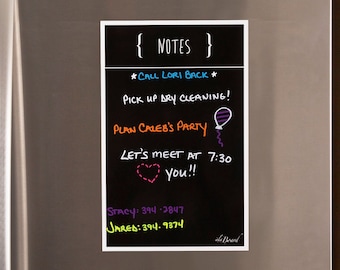 { NOTES }
*CALL LORI BACK*
PICK UP DRY CLEANING!
PLAN CALEB'S PARTY
LET'S MEET AT 7:30
YOU!!
STACY: 394-2847
JARED: 394-9374